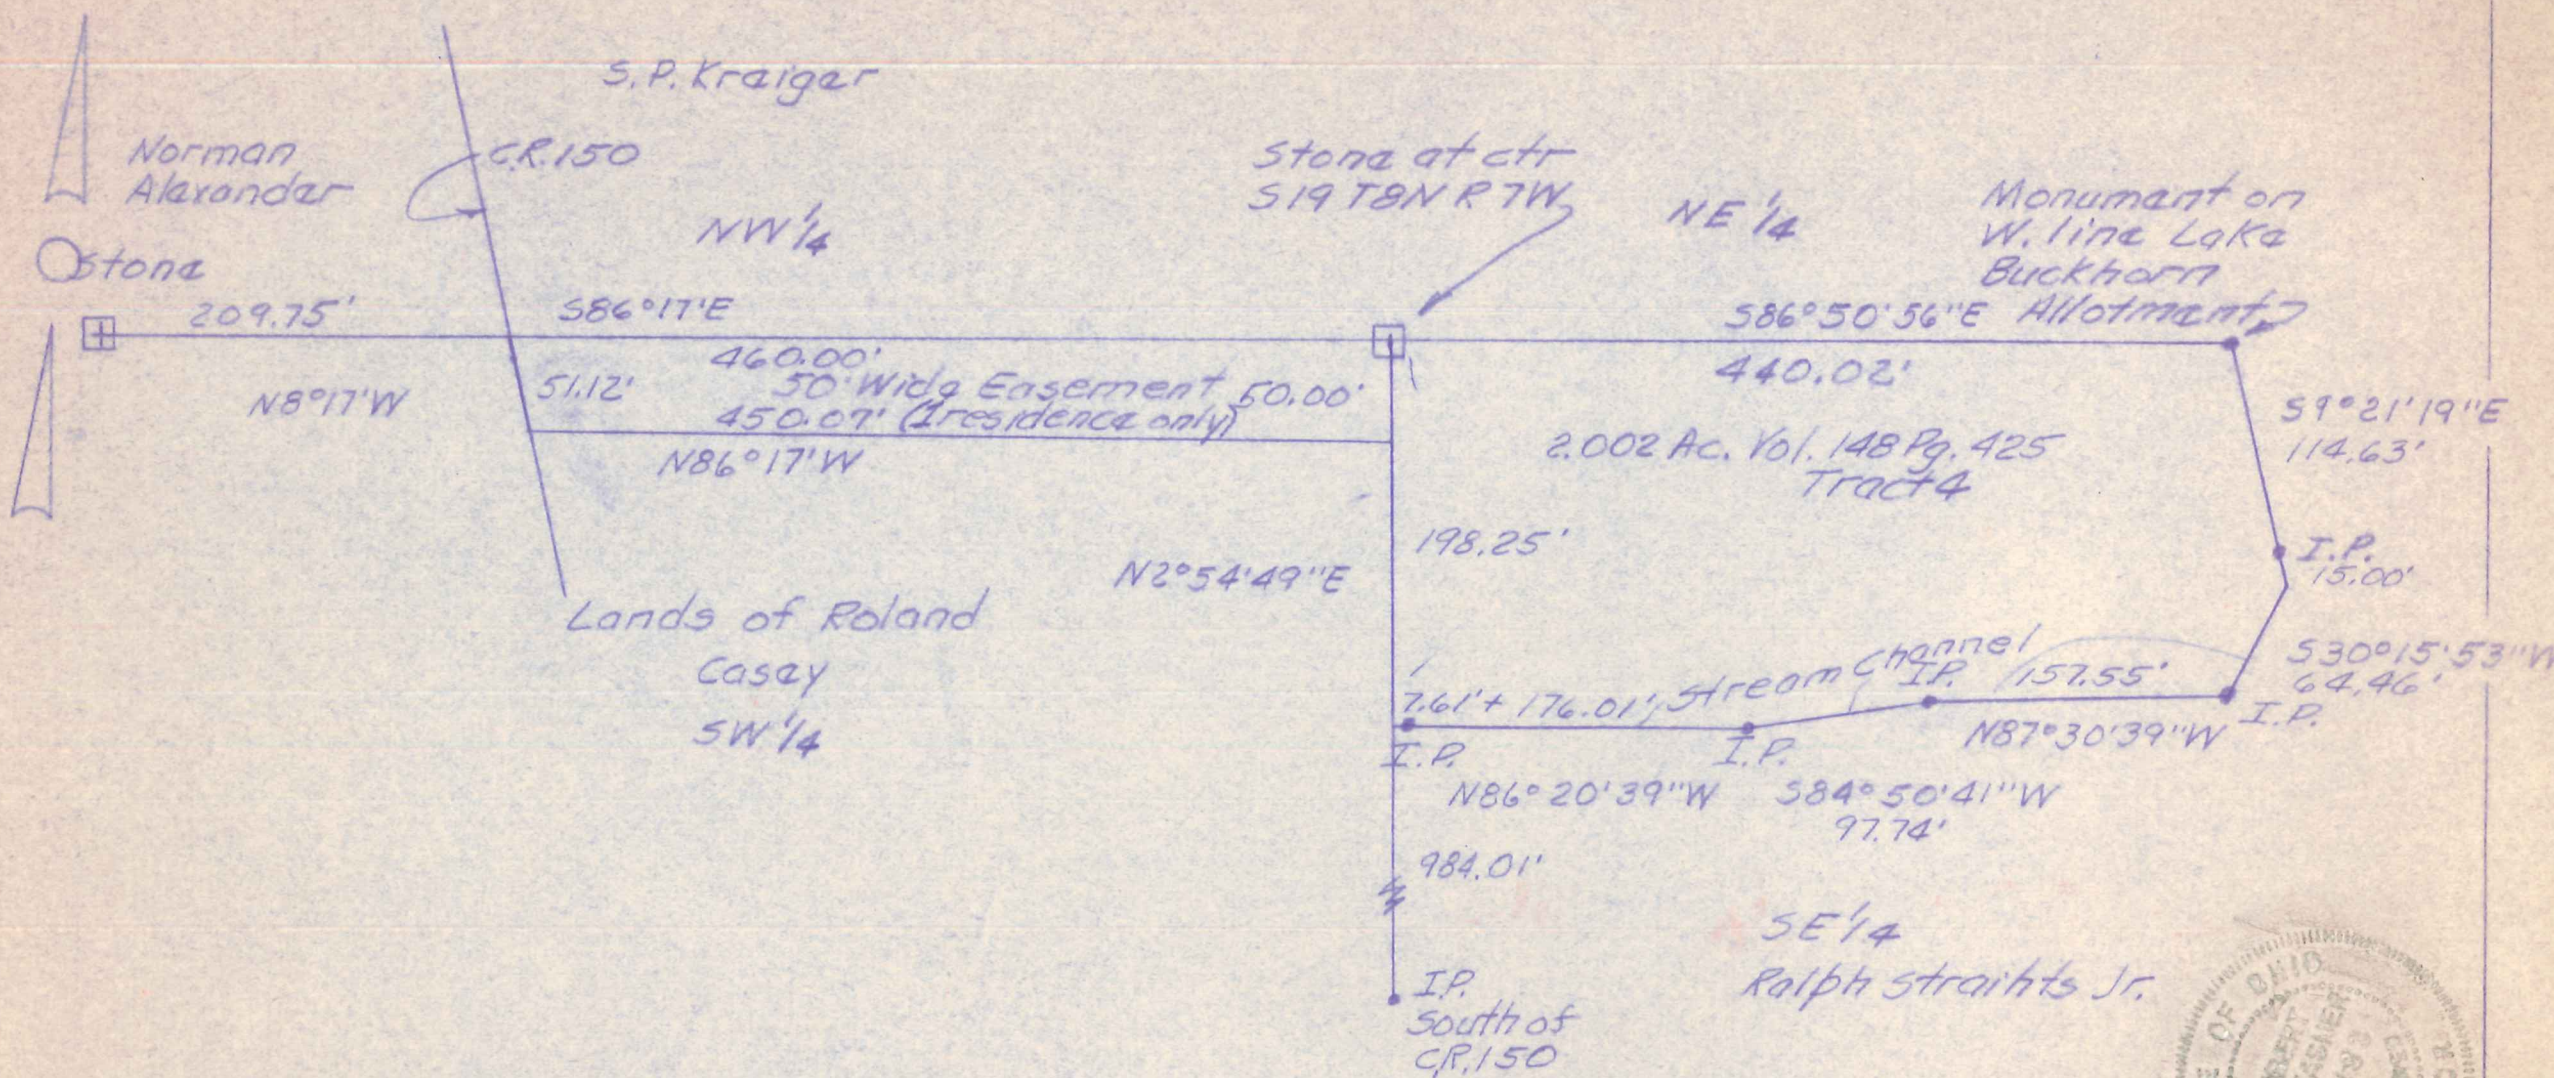 S.P. Kraiger
Norman
Alexander
C.R.150
NW 1/4
Stone at ctr
S19 T8N R7W
NE 1/4
Monument on
W. line Lake
Buckhorn
Allotment
Stone
209.75'
S86°17'E
S86°50'56"E
460.00'
440.02'
N8°17'W
51.12'
50' Wide Easement
50.00'
450.07' (1 residence only)
N86°17'W
2.002 Ac. Vol. 148 Pg. 425
Tract 4
S9°21'19"E
114.63'
198.25'
N2°54'49"E
I.P.
15.00'
Lands of Roland
Casey
SW 1/4
7.61' + 176.01'
Stream Channel
I.P.
157.55'
S30°15'53"W
64.46'
I.P.
I.P.
I.P.
N87°30'39"W
N86°20'39"W
S84°50'41"W
97.74'
984.01'
SE 1/4
Ralph Straihts Jr.
I.P.
South of
C.R.150
OF OHIO